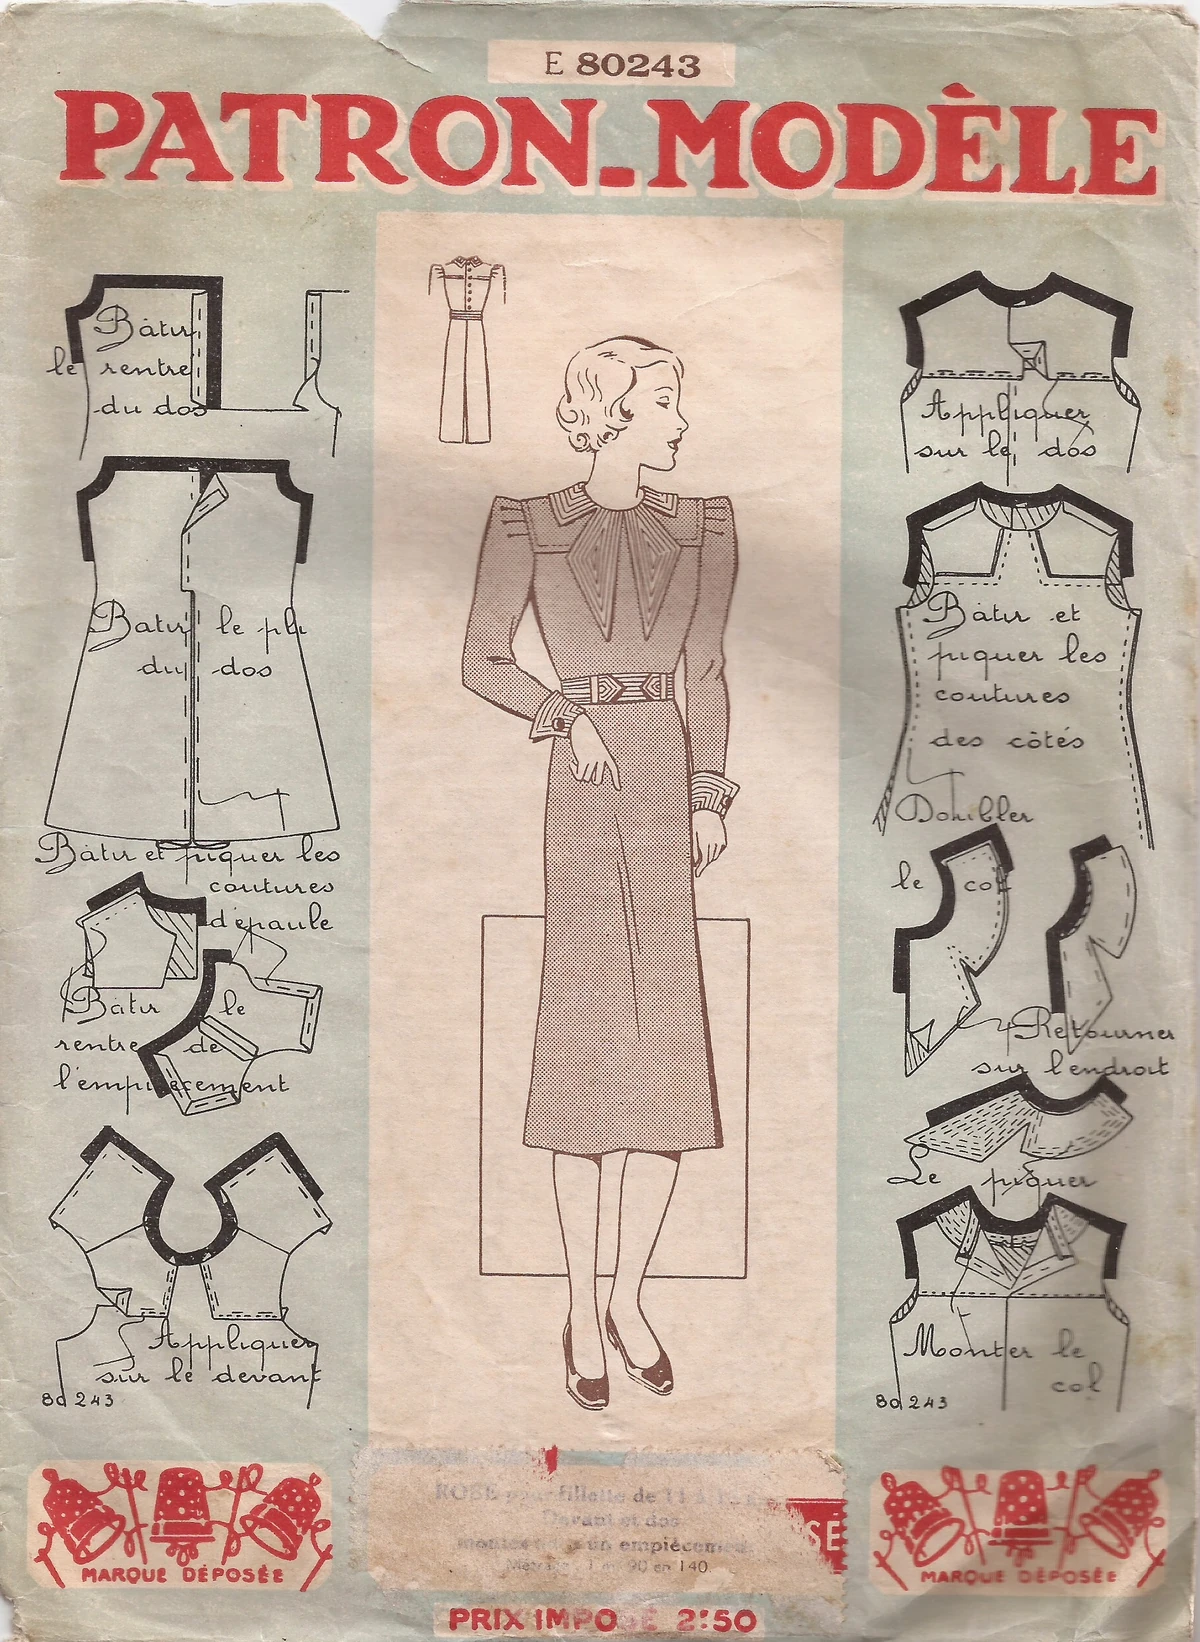 E 80243
PATRON-MODÈLE
Bâtir
le rentre
du dos
Bâtir le pli
du dos
Bâtir et piquer les
coutures
d'épaule
Bâtir le
rentre de
l'empiècement
Appliquer
sur le devant
80 243
Appliquer
sur le dos
Bâtir et
piquer les
coutures
des côtés
Doubler
le col
Retourner
sur l'endroit
Le piquer
Monter le
col
80 243
ROBE pour fillette de 11 à
Devant et dos
montés un empiècement
90 en 140
SE
MARQUE DÉPOSÉE
MARQUE DÉPOSÉE
PRIX IMPOSÉ 2.50